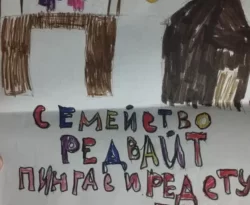 СЕМЕЙСТВО
РЕДВАЙТ
ПИНГАС И РЕД СТУ